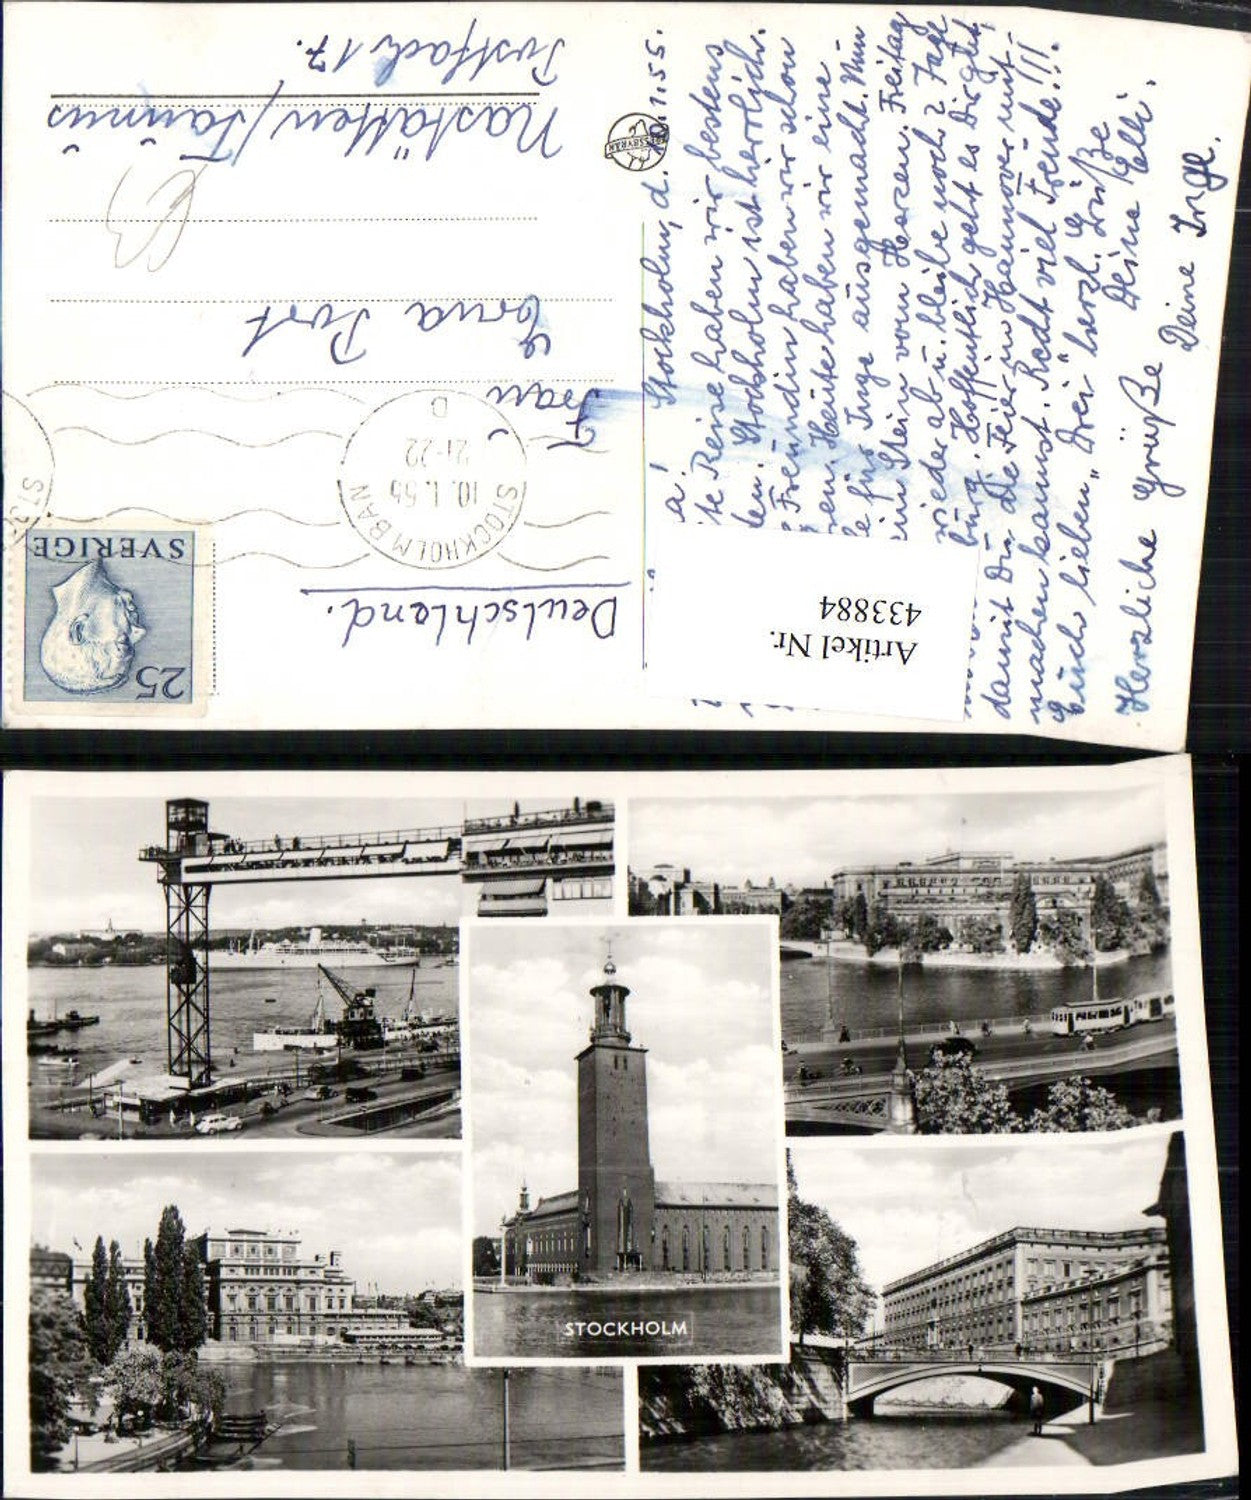 Stockholm, d. .1.55.
te Reise haben wir bestens
den. Stockholm ist herrlich.
Freundin haben wir schon
Heute haben wir eine
e für Inge ausgemacht. Nun
ein Stein vom Herzen. Freitag
wieder ab u. bleibe noch 2 Tage
burg. Hoffentlich geht es Dir gut,
damit Du die Feier in Hannover mit-
machen kannst. Recht viel Freude!!!
Euch lieben "Drei" herzl. Grüße
Deine Elli.
Herzliche Grüße
Deine Inge.
Artikel Nr.
433884
Deutschland.
SVERIGE
25
STOCKHOLM BAN
10.1.55
21-22
D
Frau
Erna Port
Nastätten/Taunus
Postfach 17.
STOCKHOLM